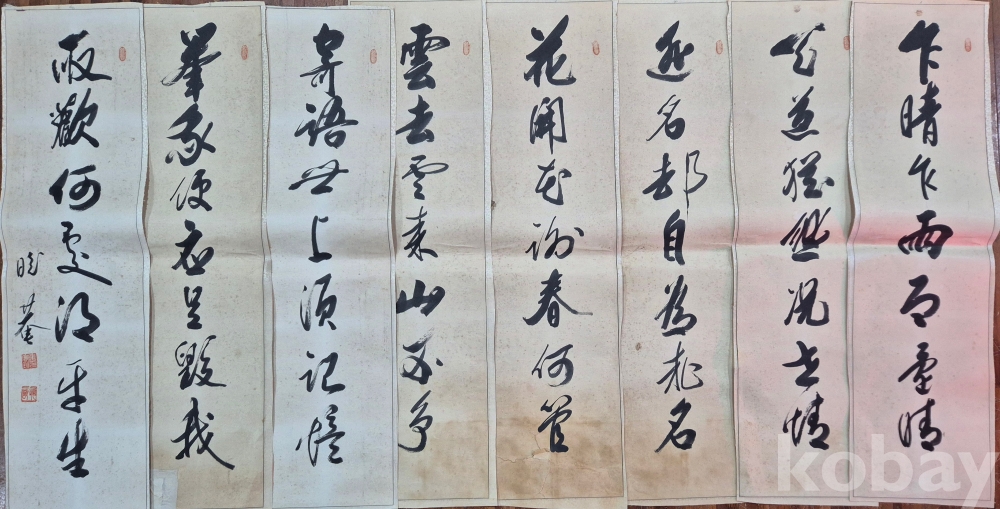 乍晴乍雨雨還晴
天道猶然況世情
逃名却自為求名
花開花謝春何管
雲去雲來山不爭
寄語世上須記憶
譽我便應是毀我
取歡何處得平生
菴
kobay